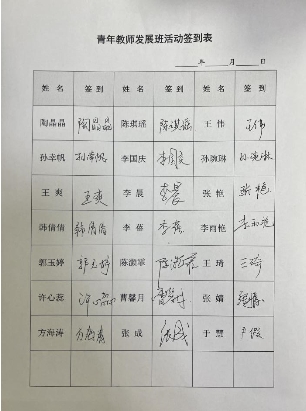 青年教师发展班活动签到表
年 月 日
姓名 签到 姓名 签到 姓名 签到
陶晶晶 陶晶晶 陈琪瑶 陈琪瑶 王伟 王伟
孙幸帆 孙幸帆 李国庆 李国庆 孙婉琳 孙婉琳
王爽 王爽 李晨 李晨 张艳 张艳
韩倩倩 韩倩倩 李蓓 李蓓 李雨艳 李雨艳
郭玉婷 郭玉婷 陈濛霏 陈濛霏 王琦 王琦
许心蕊 许心蕊 曹馨月 曹馨月 张婧 张婧
方海涛 方海涛 张成 张成 于慧